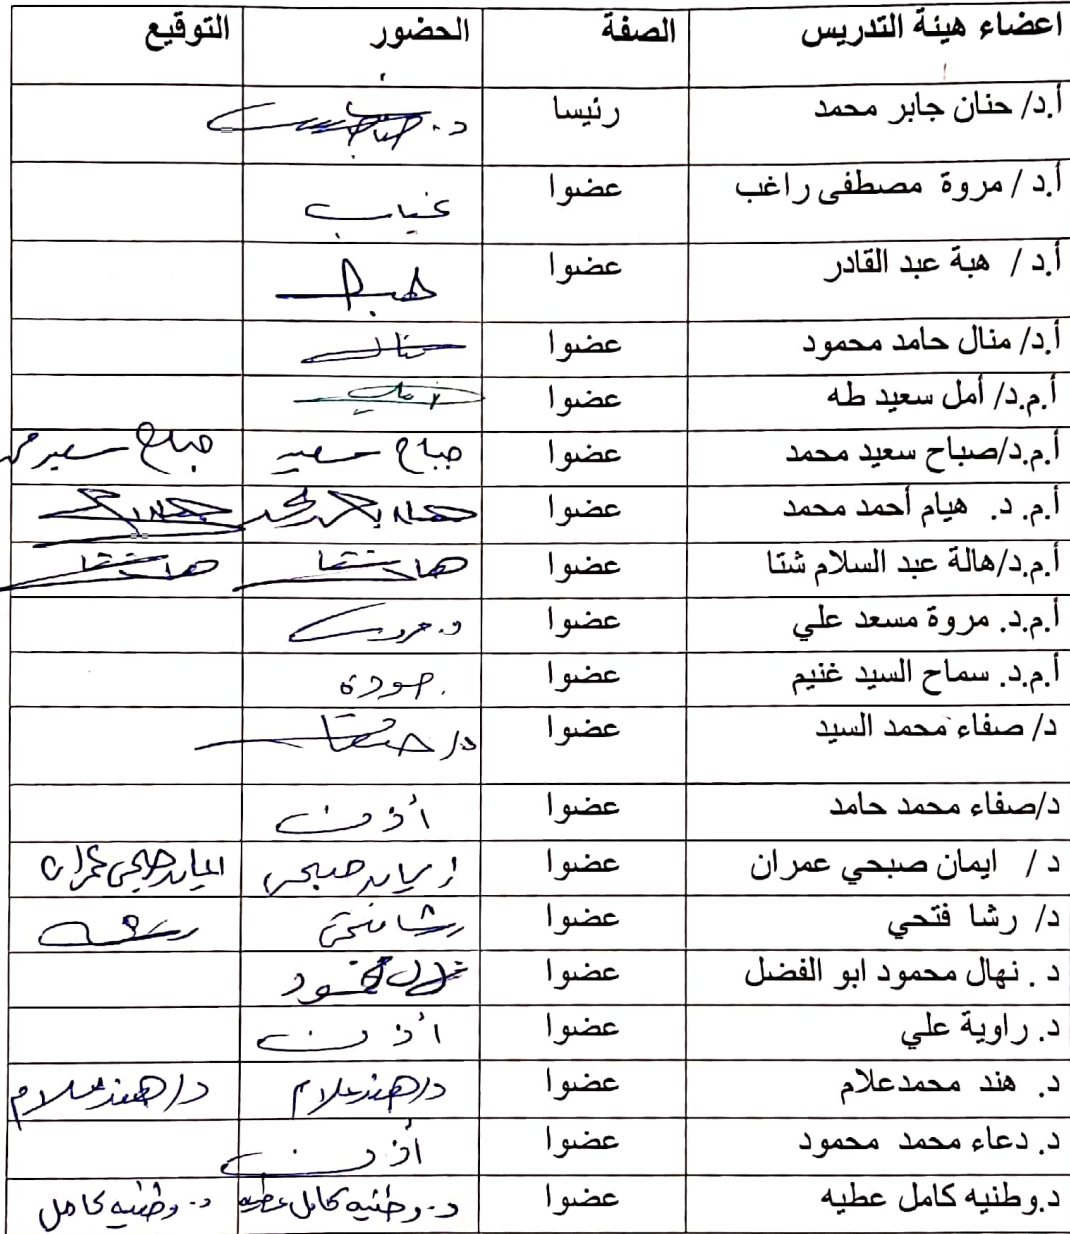 اعضاء هيئة التدريس الصفة الحضور التوقيع
أ.د/ حنان جابر محمد رئيسا
أ.د / مروة مصطفى راغب عضوا غياب
أ.د / هبة عبد القادر عضوا هبه
أ.د/ منال حامد محمود عضوا منال
أ.م.د/ أمل سعيد طه عضوا أمل
أ.م.د/صباح سعيد محمد عضوا صباح سعيد صباح سعيد
أ.م.د. هيام أحمد محمد عضوا
أ.م.د/هالة عبد السلام شتا عضوا هاله شتا هاله شتا
أ.م.د. مروة مسعد علي عضوا د. مروة
أ.م.د. سماح السيد غنيم عضوا
د/ صفاء محمد السيد عضوا د/ صفاء
د/صفاء محمد حامد عضوا
د / ايمان صبحي عمران عضوا إيمان صبحى ايمان صبحى عمران
د/ رشا فتحي عضوا رشا فتحى
د . نهال محمود ابو الفضل عضوا نهال محمود
د. راوية علي عضوا
د. هند محمدعلام عضوا د/ هند علام د/ هند علام
د. دعاء محمد محمود عضوا
د.وطنيه كامل عطيه عضوا د. وطنيه كامل عطيه د. وطنيه كامل